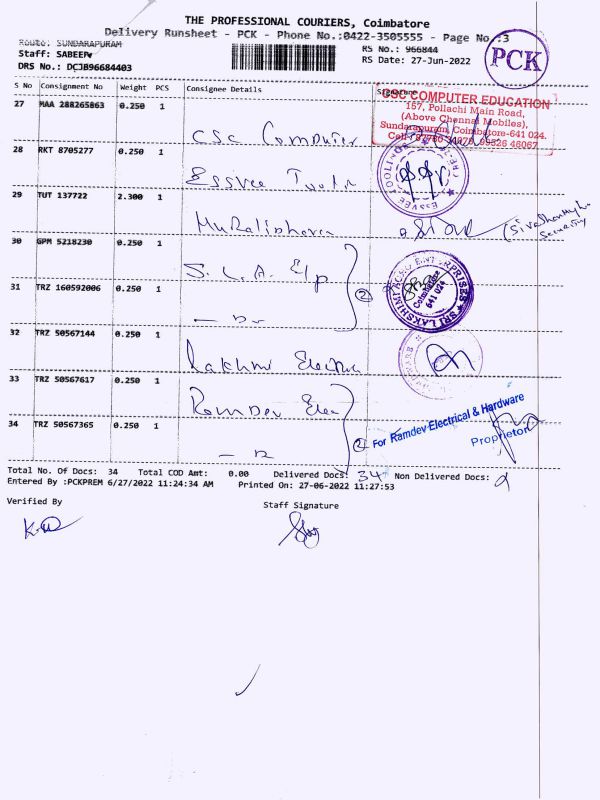 THE PROFESSIONAL COURIERS, Coimbatore
Delivery Runsheet - PCK - Phone No.:0422-3505555 - Page No.:3
Route: SUNDARAPURAM
RS No.: 966844
Staff: SABEER
RS Date: 27-Jun-2022
DRS No.: DCJB96684403
PCK
S No Consignment No Weight PCS Consignee Details Signature
27 MAA 288265863 0.250 1 CSC Computer
CSC COMPUTER EDUCATION
157, Pollachi Main Road,
(Above Chennai Mobiles),
Sundarapuram, Coimbatore-641 024.
28 RKT 8705277 0.250 1 Essvee
ESSVEE TOOLING
29 TUT 137722 2.300 1
Security
30 GPM 5218230 0.250 1 S.L.A. E/p
2
SRI LAKSHMI ENTERPRISES
Coimbatore
641 024
31 TRZ 160592006 0.250 1
32 TRZ 50567144 0.250 1 Lakhmi
33 TRZ 50567617 0.250 1 Ramdev Elec
2
For Ramdev Electrical & Hardware
Proprietor
34 TRZ 50567365 0.250 1
Total No. Of Docs: 34 Total COD Amt: 0.00 Delivered Docs: 34 Non Delivered Docs:
Entered By :PCKPREM 6/27/2022 11:24:34 AM Printed On: 27-06-2022 11:27:53
Verified By Staff Signature